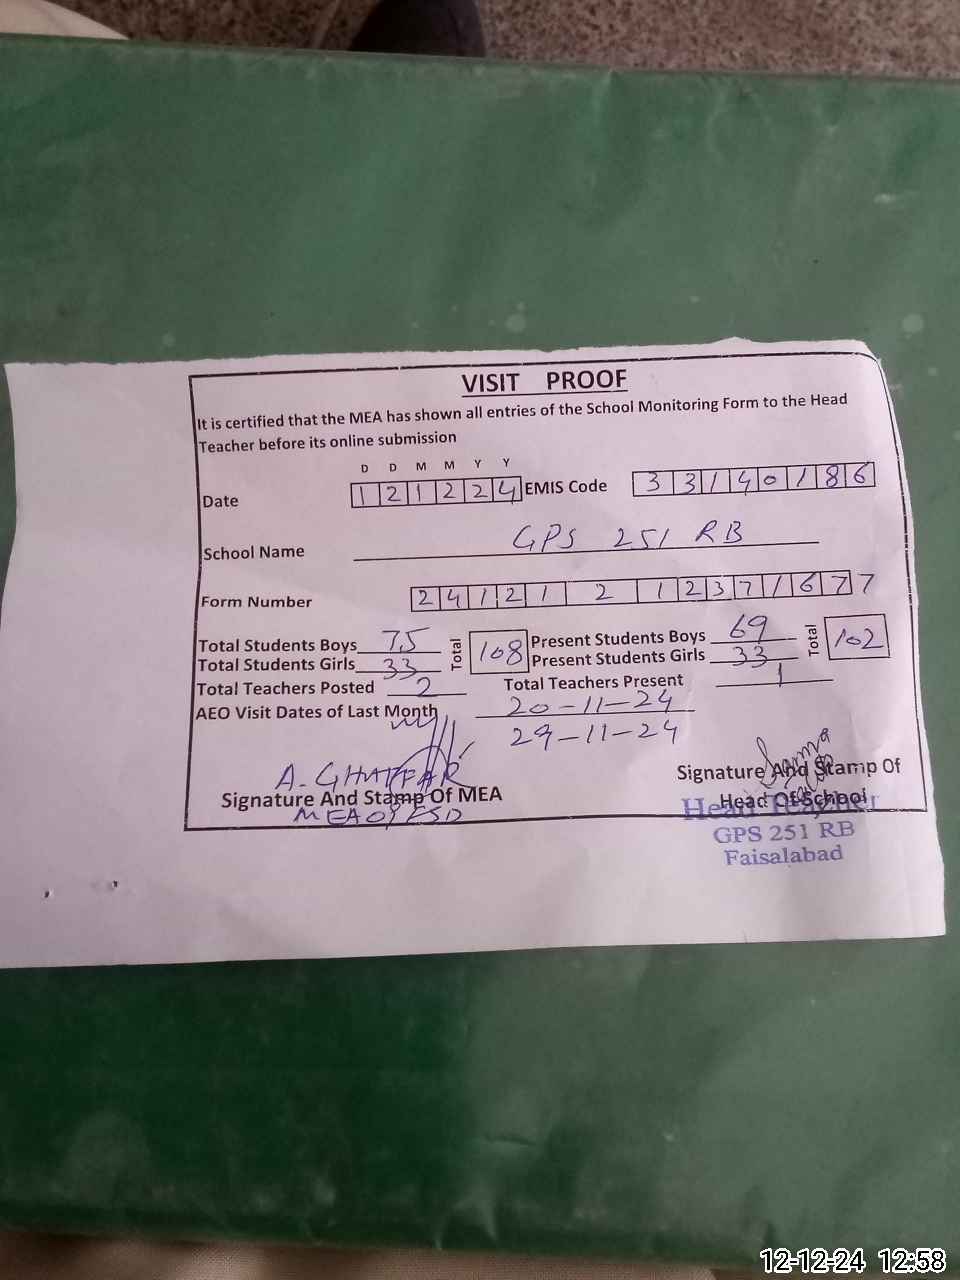 VISIT PROOF
It is certified that the MEA has shown all entries of the School Monitoring Form to the Head
Teacher before its online submission
D D M M Y Y
Date 1 2 1 2 2 4 EMIS Code 3 3 1 4 0 1 8 6
School Name GPS 251 RB
Form Number 2 4 1 2 1 2 1 2 3 7 1 6 7 7
Total Students Boys 75 Total 108 Present Students Boys 69 Total 102
Total Students Girls 33 Present Students Girls 33
Total Teachers Posted 2 Total Teachers Present 1
AEO Visit Dates of Last Month 20-11-24
29-11-24
A. GHAFFAR
Signature And Stamp Of MEA
Signature And Stamp Of
Head Of School
Head Teacher
GPS 251 RB
Faisalabad
12-12-24 12:58